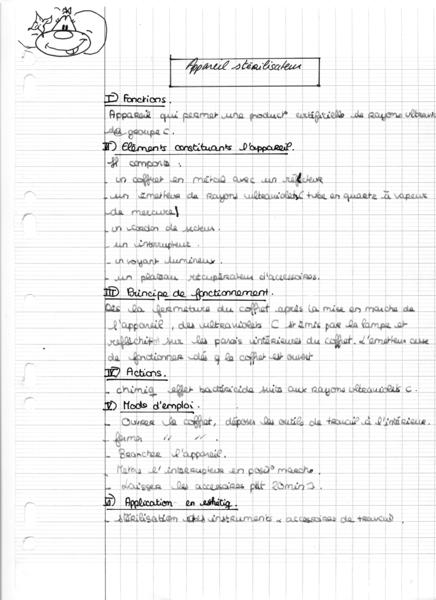 Appareil stérilisateur
I) Fonctions.
Appareil qui permet une product° artificielle de rayons ultraviolets
du groupe C.
II) Eléments constituants l'appareil.
Il comporte :
- un coffret en métal avec un réflecteur
- un émetteur de rayons ultraviolets ( tube en quartz à vapeur
de mercure)
- un cordon de secteur.
- un interrupteur.
- un voyant lumineux.
- un plateau récupérateur d'accessoires.
III) Principe de fonctionnement.
Dès la fermeture du coffret après la mise en marche de
l'appareil, des ultraviolets C st émis par la lampe et
réfléchit sur les parois intérieures du coffret. L'émetteur cesse
de fonctionner dès q le coffret est ouvert
IV) Actions.
- chimiq effet bactéricide suite aux rayons ultraviolets C.
V) Mode d'emploi.
- Ouvrir le coffret, déposer les outils de travail à l'intérieur.
- fermer " " .
- Brancher l'appareil.
- Mettre l'interrupteur en posit° marche.
- Laisser les accessoires pdt 20min
VI) Application en esthétiq.
- stérilisation des instruments accessoires de travail.